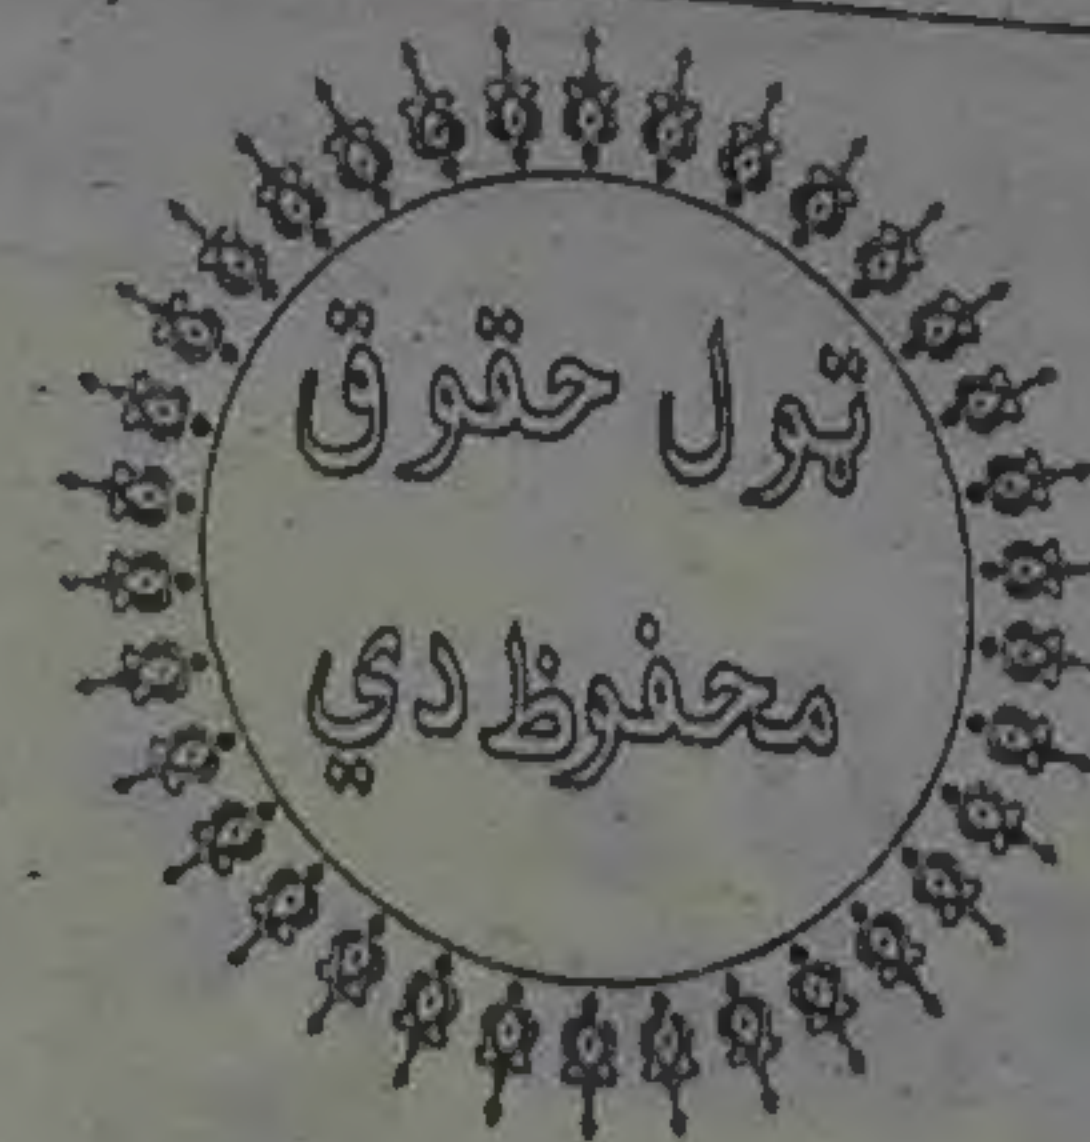 ټول حقوق
محفوظ دي